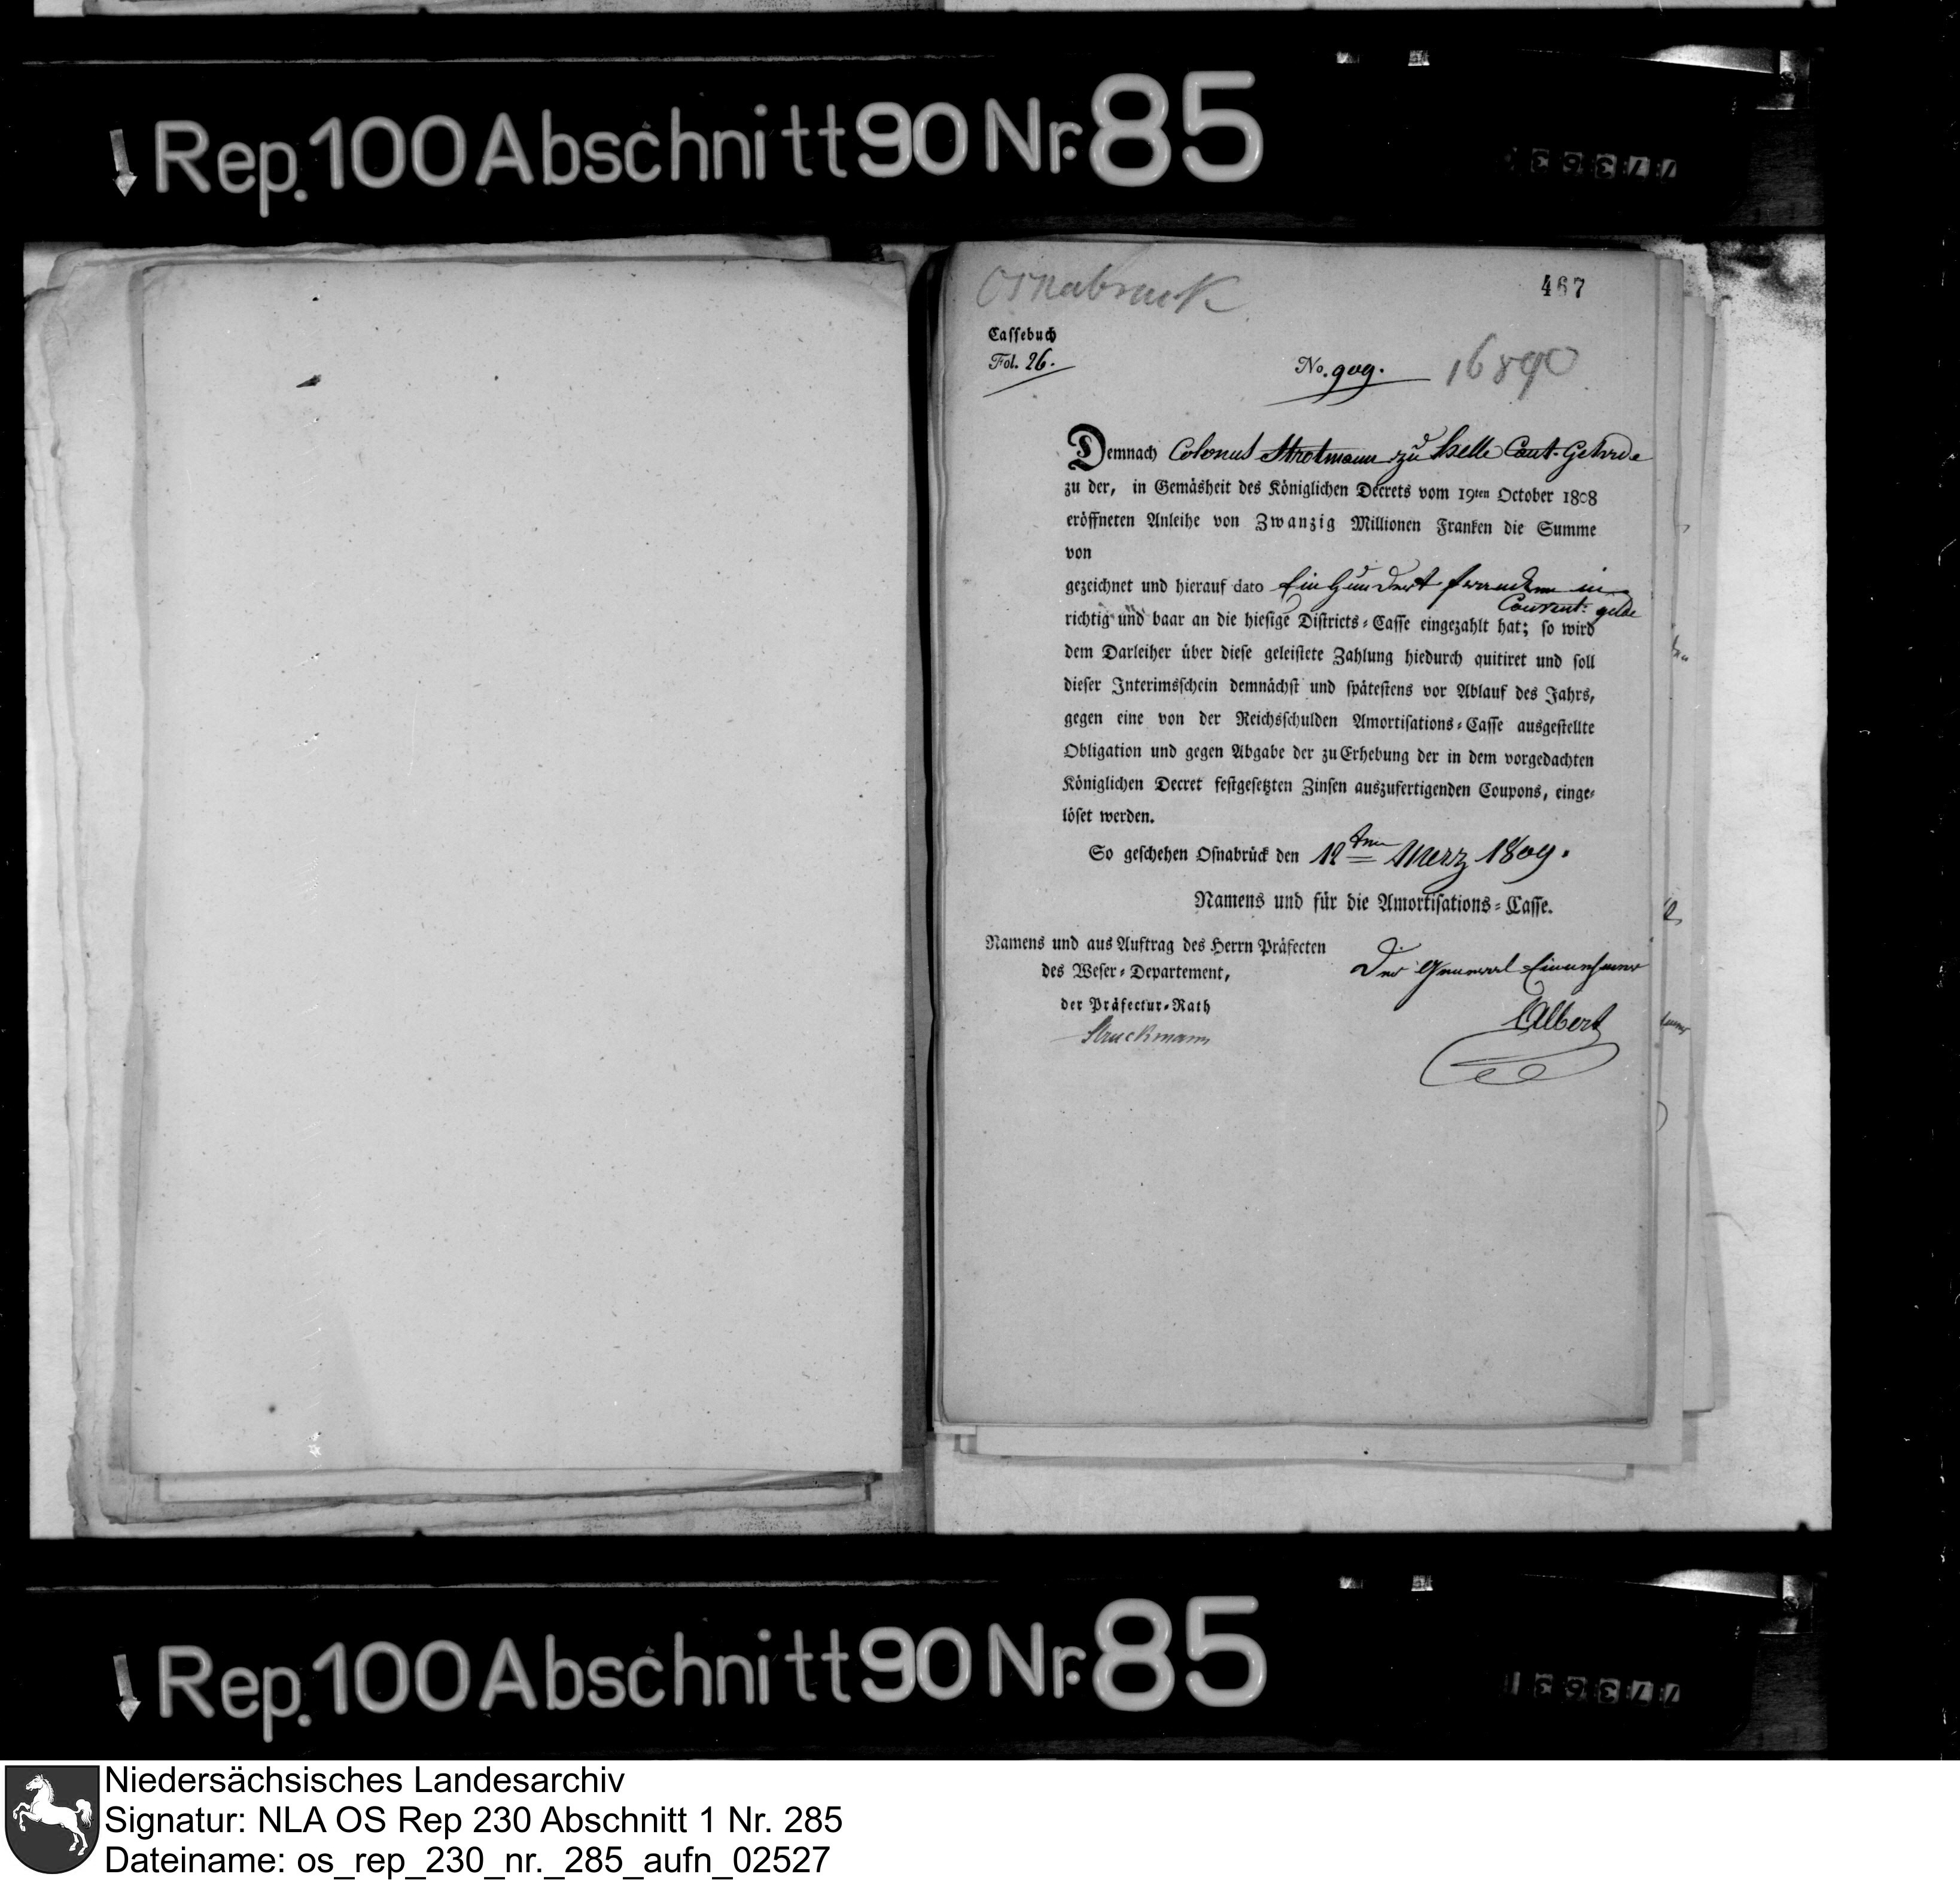 Rep. 100 Abschnitt 90 Nr. 85
Osnabruck
467
Cassebuch
Fol. 26.
No. 909.
16890
Demnach Colonus Strotmann zu Helle Cant. Gehrde
zu der, in Gemäsheit des Königlichen Decrets vom 19ten October 1808
eröffneten Anleihe von Zwanzig Millionen Franken die Summe
von
gezeichnet und hierauf dato Ein Hundert francken in
Courent: gelde
richtig und baar an die hiesige Districts-Casse eingezahlt hat; so wird
dem Darleiher über diese geleistete Zahlung hiedurch quitiret und soll
dieser Interimsschein demnächst und spätestens vor Ablauf des Jahrs,
gegen eine von der Reichsschulden Amortisations-Casse ausgestellte
Obligation und gegen Abgabe der zu Erhebung der in dem vorgedachten
Königlichen Decret festgesetzten Zinsen auszufertigenden Coupons, einge-
löset werden.
So geschehen Osnabrück den 12ten Merz 1809.
Namens und für die Amortisations-Casse.
Namens und aus Auftrag des Herrn Präfecten
des Weser-Departement,
der Präfectur-Rath
Struckmann
Der General Einnehmer
Albert
Rep. 100 Abschnitt 90 Nr. 85
Niedersächsisches Landesarchiv
Signatur: NLA OS Rep 230 Abschnitt 1 Nr. 285
Dateiname: os_rep_230_nr._285_aufn_02527